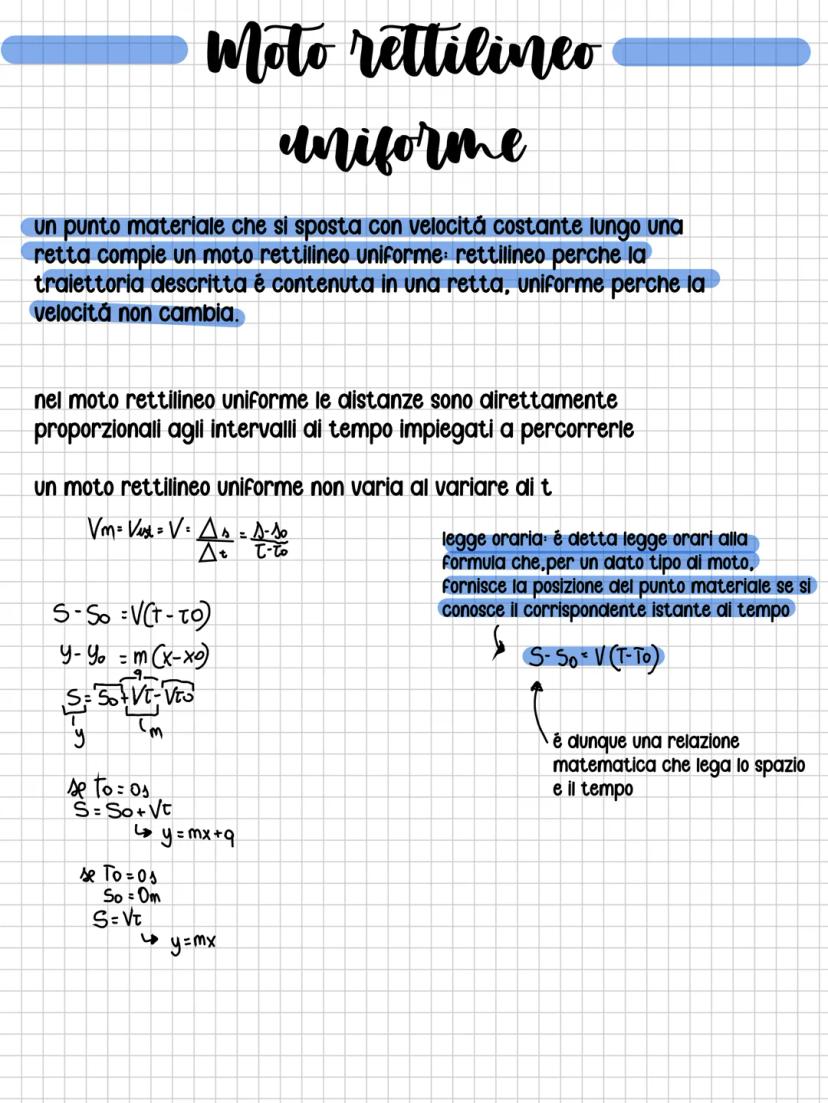 Moto rettilineo
uniforme
un punto materiale che si sposta con velocitá costante lungo una
retta compie un moto rettilineo uniforme: rettilineo perche la
traiettoria descritta é contenuta in una retta, uniforme perche la
velocitá non cambia.
nel moto rettilineo uniforme le distanze sono direttamente
proporzionali agli intervalli di tempo impiegati a percorrerle
un moto rettilineo uniforme non varia al variare di t
Vm = Vist = V = Δs/Δt = s-s0/t-t0
S-S0 = V(t-t0)
y-y0 = m(x-x0)
q
S = S0+Vt-Vt0
y m
se T0=0s
S=S0+Vt
↳ y=mx+q
se T0=0s
S0=0m
S=Vt
↳ y=mx
legge oraria: é detta legge orari alla
formula che,per un dato tipo di moto,
fornisce la posizione del punto materiale se si
conosce il corrispondente istante di tempo
S-S0=V(T-T0)
é dunque una relazione
matematica che lega lo spazio
e il tempo